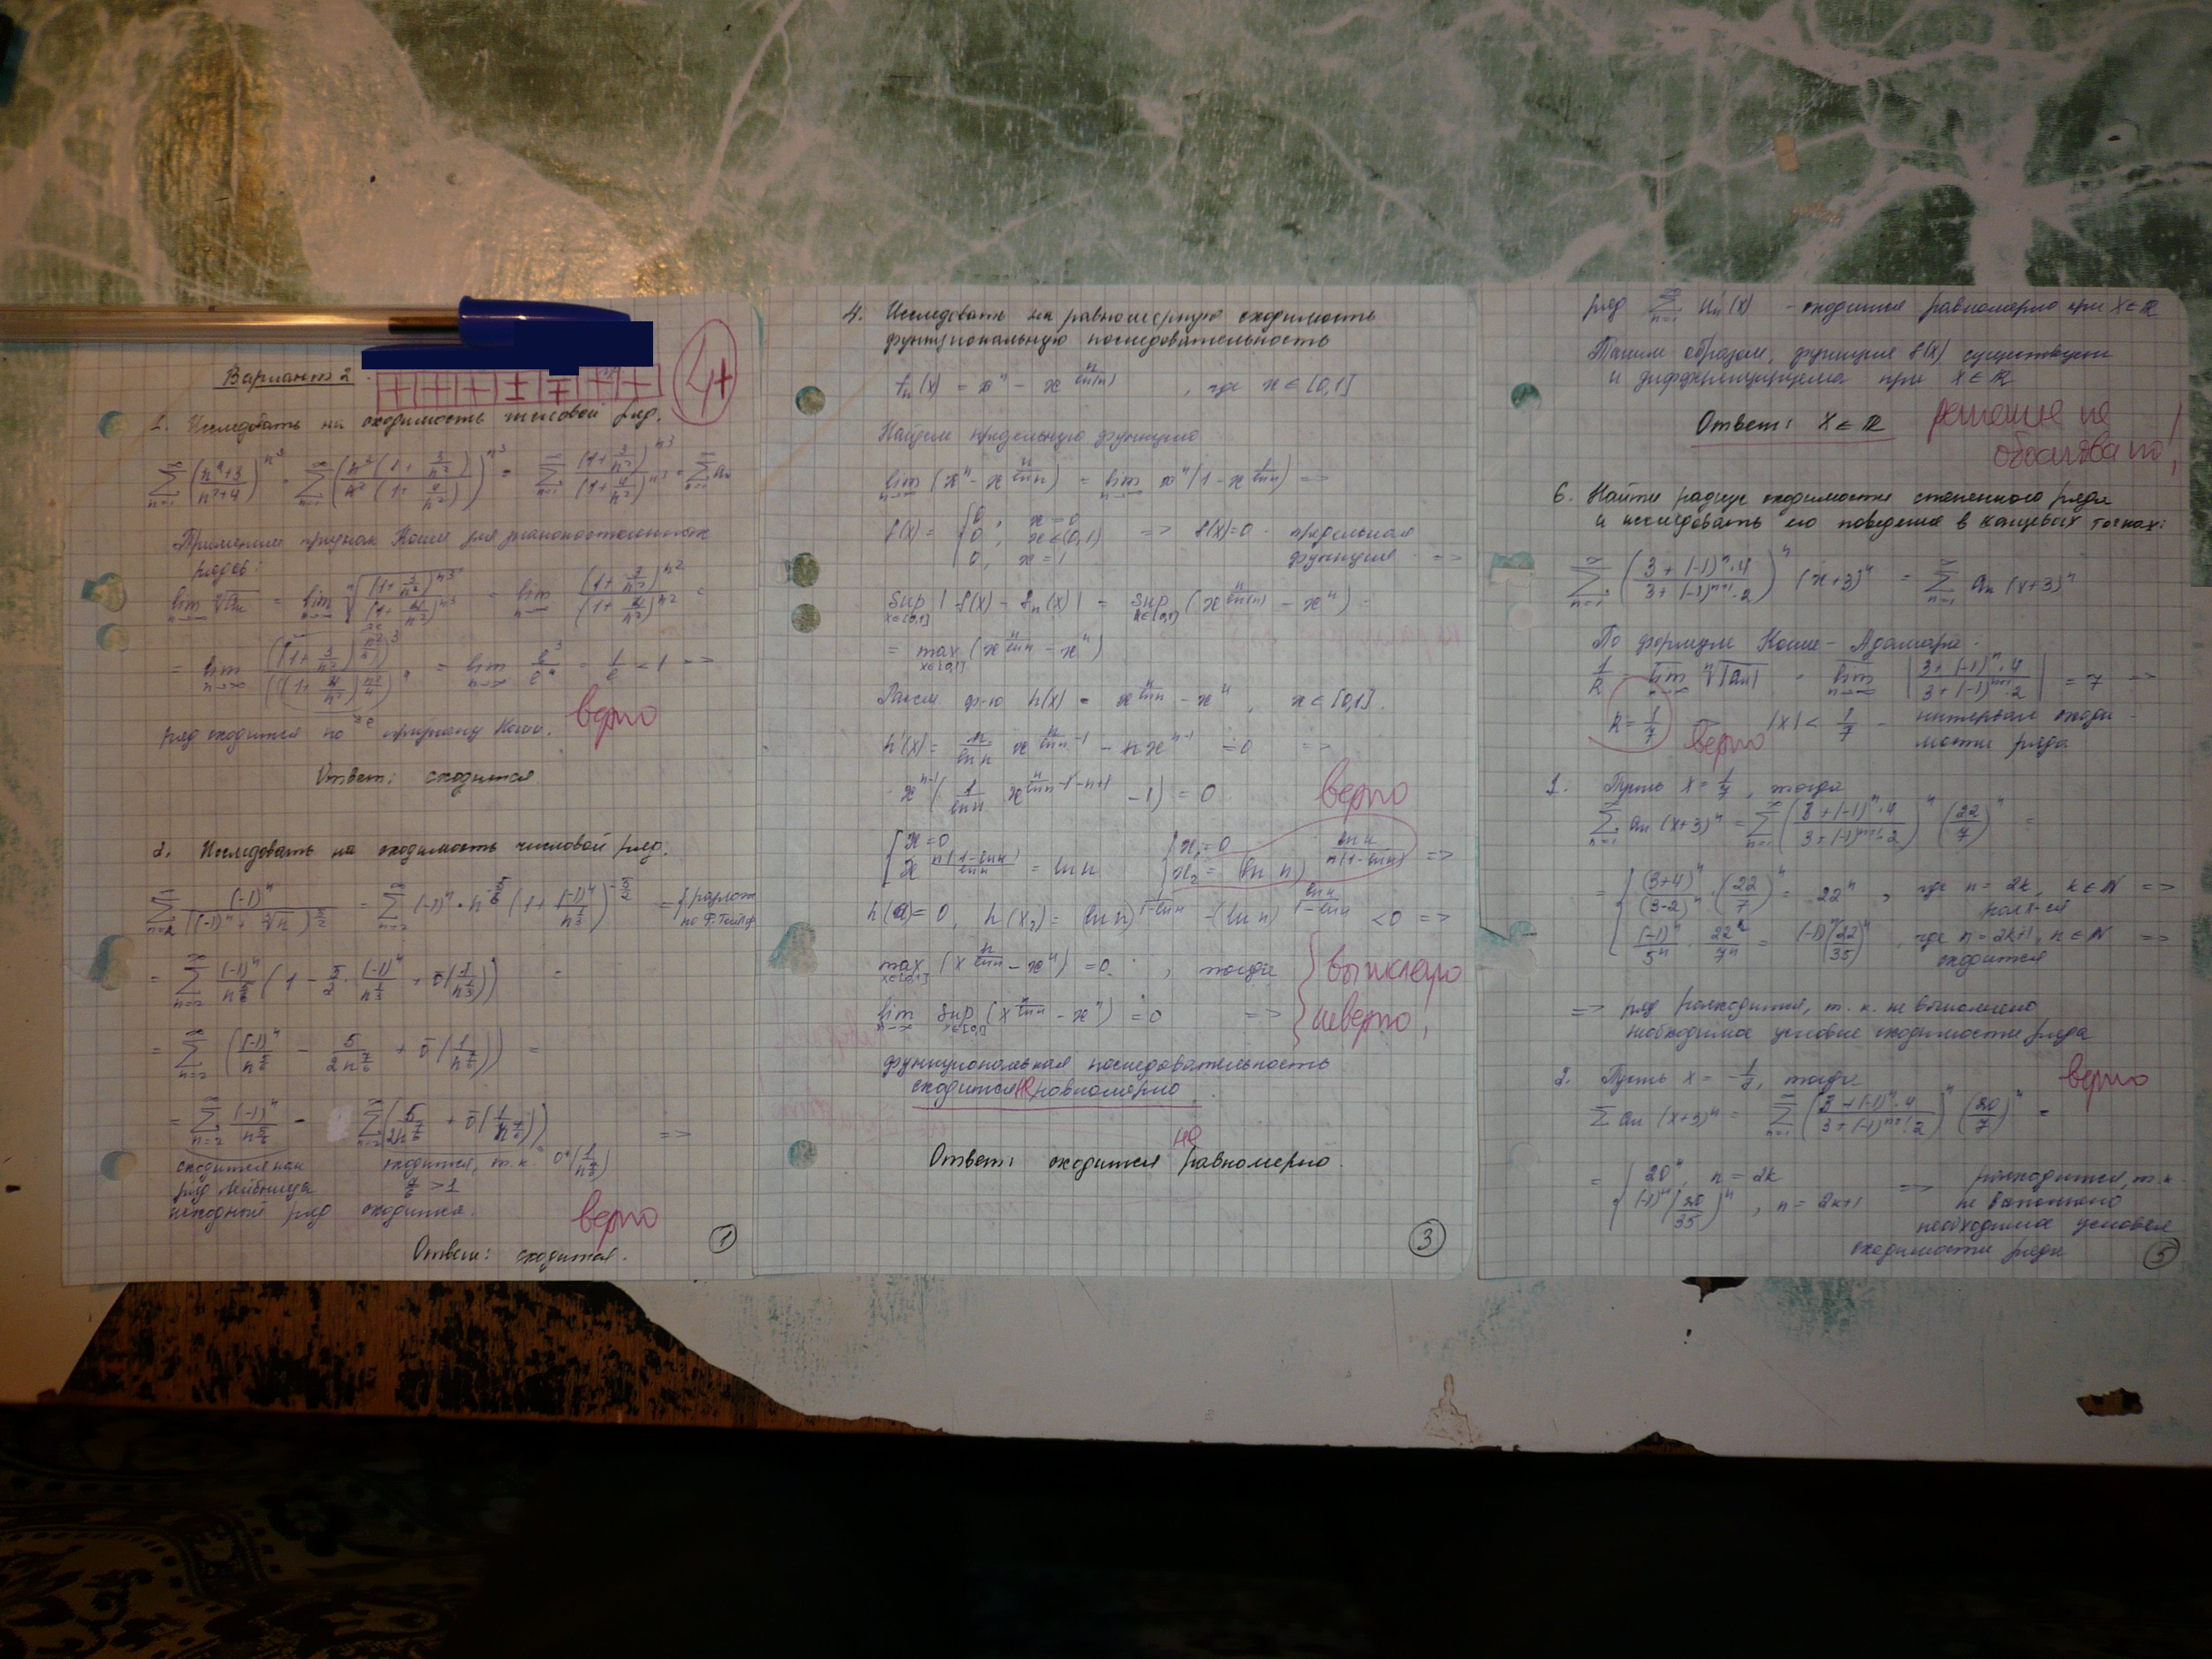 Вариант 2.
+ + + ± ∓ + +
4+
1. Исследовать на сходимость числовой ряд.
∑_{n=1}^∞ ((n²+3)/(n²+4))^{n³} = ∑_{n=1}^∞ ((n²(1+3/n²))/(n²(1+4/n²)))^{n³} = ∑_{n=1}^∞ (1+3/n²)^{n³}/(1+4/n²)^{n³} = ∑_{n=1}^∞ aₙ
Применим признак Коши для знакопостоянных
рядов:
lim_{n→∞} ⁿ√aₙ = lim_{n→∞} ⁿ√((1+3/n²)^{n³}/(1+4/n²)^{n³}) = lim_{n→∞} (1+3/n²)^{n²}/(1+4/n²)^{n²} =
= lim_{n→∞} ((1+3/n²)^{n²/3})³/((1+4/n²)^{n²/4})⁴ = lim_{n→∞} e³/e⁴ = 1/e < 1 =>
ряд сходится по признаку Коши.
верно
Ответ: сходится.
2. Исследовать на сходимость числовой ряд.
∑_{n=2}^∞ (-1)ⁿ/((-1)ⁿ + ³√n)^{5/2} = ∑_{n=2}^∞ (-1)ⁿ · n^{-5/6} (1 + (-1)ⁿ/n^{1/3})^{-5/2} = {разлож
по Ф. Тейл
= ∑_{n=2}^∞ (-1)ⁿ/n^{5/6} (1 - 5/2 · (-1)ⁿ/n^{1/3} + ō(1/n^{1/3})) =
= ∑_{n=2}^∞ ((-1)ⁿ/n^{5/6} - 5/(2n^{7/6}) + ō(1/n^{7/6})) =
= ∑_{n=2}^∞ (-1)ⁿ/n^{5/6} - ∑_{n=2}^∞ (5/(2n^{7/6}) + ō(1/n^{7/6})) =>
сходится как сходится, т.к. O*(1/n^{7/6})
ряд Лейбница 7/6 > 1
исходный ряд сходится.
верно
Ответ: сходится.
1
4. Исследовать на равномерную сходимость
функциональную последовательность
fₙ(x) = xⁿ - x^{n/ln(n)}, где x ∈ [0,1]
Найдем предельную функцию
lim_{n→∞} (xⁿ - x^{n/ln n}) = lim_{n→∞} xⁿ(1 - x^{1/ln n}) =>
f(x) = { 0, x=0
0, x∈(0,1) => f(x)=0 - предельная
0, x=1 функция =>
sup_{x∈[0,1]} |f(x) - fₙ(x)| = sup_{x∈[0,1]} (x^{n/ln(n)} - xⁿ) =
= max_{x∈[0,1]} (x^{n/ln n} - xⁿ)
Рассм ф-ю h(x) = x^{n/ln n} - xⁿ, x ∈ [0,1].
h'(x) = n/ln n x^{n/ln n - 1} - nx^{n-1} = 0 =>
x^{n-1} (1/ln n x^{n/ln n - 1 - n + 1} - 1) = 0
верно
[ x=0 [ x₁=0
x^{n(1-ln n)/ln n} = ln n x₂ = (ln n)^{ln n/(n(1-ln n))} =>
h(0)=0, h(x₂) = (ln n)^{1/(1-ln n)} - (ln n)^{ln n/(1-ln n)} < 0 =>
max_{x∈[0,1]} (x^{n/ln n} - xⁿ) = 0, тогда
lim_{n→∞} sup_{x∈[0,1]} (x^{n/ln n} - xⁿ) = 0 =>
} вычислено
неверно!
функциональная последовательность
сходится не равномерно.
Ответ: сходится не равномерно.
3
ряд ∑_{n=1}^∞ uₙ'(x) - сходится равномерно при x∈ℝ
Таким образом, функция f(x) существует
и дифференцируема при x∈ℝ
Ответ: x∈ℝ
решение не
обосновано!
6. Найти радиус сходимости степенного ряда
и исследовать его поведение в концевых точках:
∑_{n=1}^∞ ((3+(-1)ⁿ·4)/(3+(-1)^{n+1}·2))ⁿ (x+3)ⁿ = ∑_{n=1}^∞ aₙ (x+3)ⁿ
По формуле Коши-Адамара:
1/R = lim_{n→∞} ⁿ√|aₙ| = lim_{n→∞} |(3+(-1)ⁿ·4)/(3+(-1)^{n+1}·2)| = 7 =>
R = 1/7 верно |x| < 1/7 - интервал сходи-
мости ряда
1. Пусть x = 1/7, тогда
∑_{n=1}^∞ aₙ(x+3)ⁿ = ∑_{n=1}^∞ ((3+(-1)ⁿ·4)/(3+(-1)^{n+1}·2))ⁿ (22/7)ⁿ =
= { (3+4)ⁿ/(3-2)ⁿ · (22/7)ⁿ = 22ⁿ, где n=2k, k∈N =>
расх-ся
(-1)ⁿ/5ⁿ · 22ⁿ/7ⁿ = (-1)ⁿ(22/35)ⁿ, где n=2k+1, n∈N =>
сходится
=> ряд расходится, т.к. не выполнено
необходимое условие сходимости ряда
2. Пусть x = -1/7, тогда
верно
∑ aₙ (x+3)ⁿ = ∑_{n=1}^∞ ((3+(-1)ⁿ·4)/(3+(-1)^{n+1}·2))ⁿ (20/7)ⁿ =
= { 20ⁿ, n=2k => расходится, т.к.
(-1)ⁿ(20/35)ⁿ, n=2k+1 не выполнено
необходимое условие
сходимости ряда
5